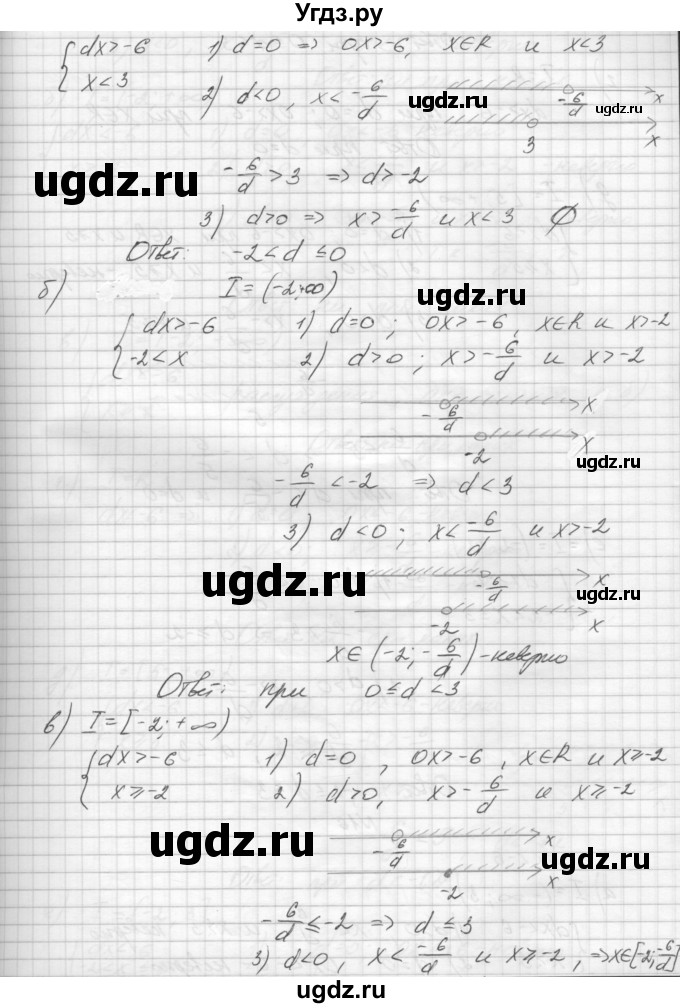 Угдз.ру
{ dx>-6 1) d=0 ⇒ 0x>-6, x∈R и x<3
x<3 2) d<0, x<-6/d
ugdz.ru
ugdz.ru
-6/d x
3 x
ugdz.ru
-6/d >3 ⇒ d>-2
3) d>0 ⇒ x>-6/d и x<3 ∅
Ответ: -2<d≤0
б) I=(-2;∞)
ugdz.ru
{ dx>-6 1) d=0; 0x>-6, x∈R и x>-2
-2<x 2) d>0; x>-6/d и x>-2
-6/d x
-2 x
ugdz.ru
-6/d <-2 ⇒ d<3
3) d<0; x<-6/d и x>-2
ugdz.ru
-6/d x
ugdz.ru
-2 x
x∈(-2;-6/d)-неверно
Ответ: при 0≤d<3
в) I=[-2;+∞)
{ dx>-6 1) d=0, 0x>-6, x∈R и x≥-2
x≥-2 2) d>0, x>-6/d и x≥-2
ugdz.ru
-6/d x
ugdz.ru
-2 x
-6/d ≤-2 ⇒ d≤3
ugdz.ru
3) d<0, x<-6/d и x≥-2, ⇒x∈[-2;-6/d]